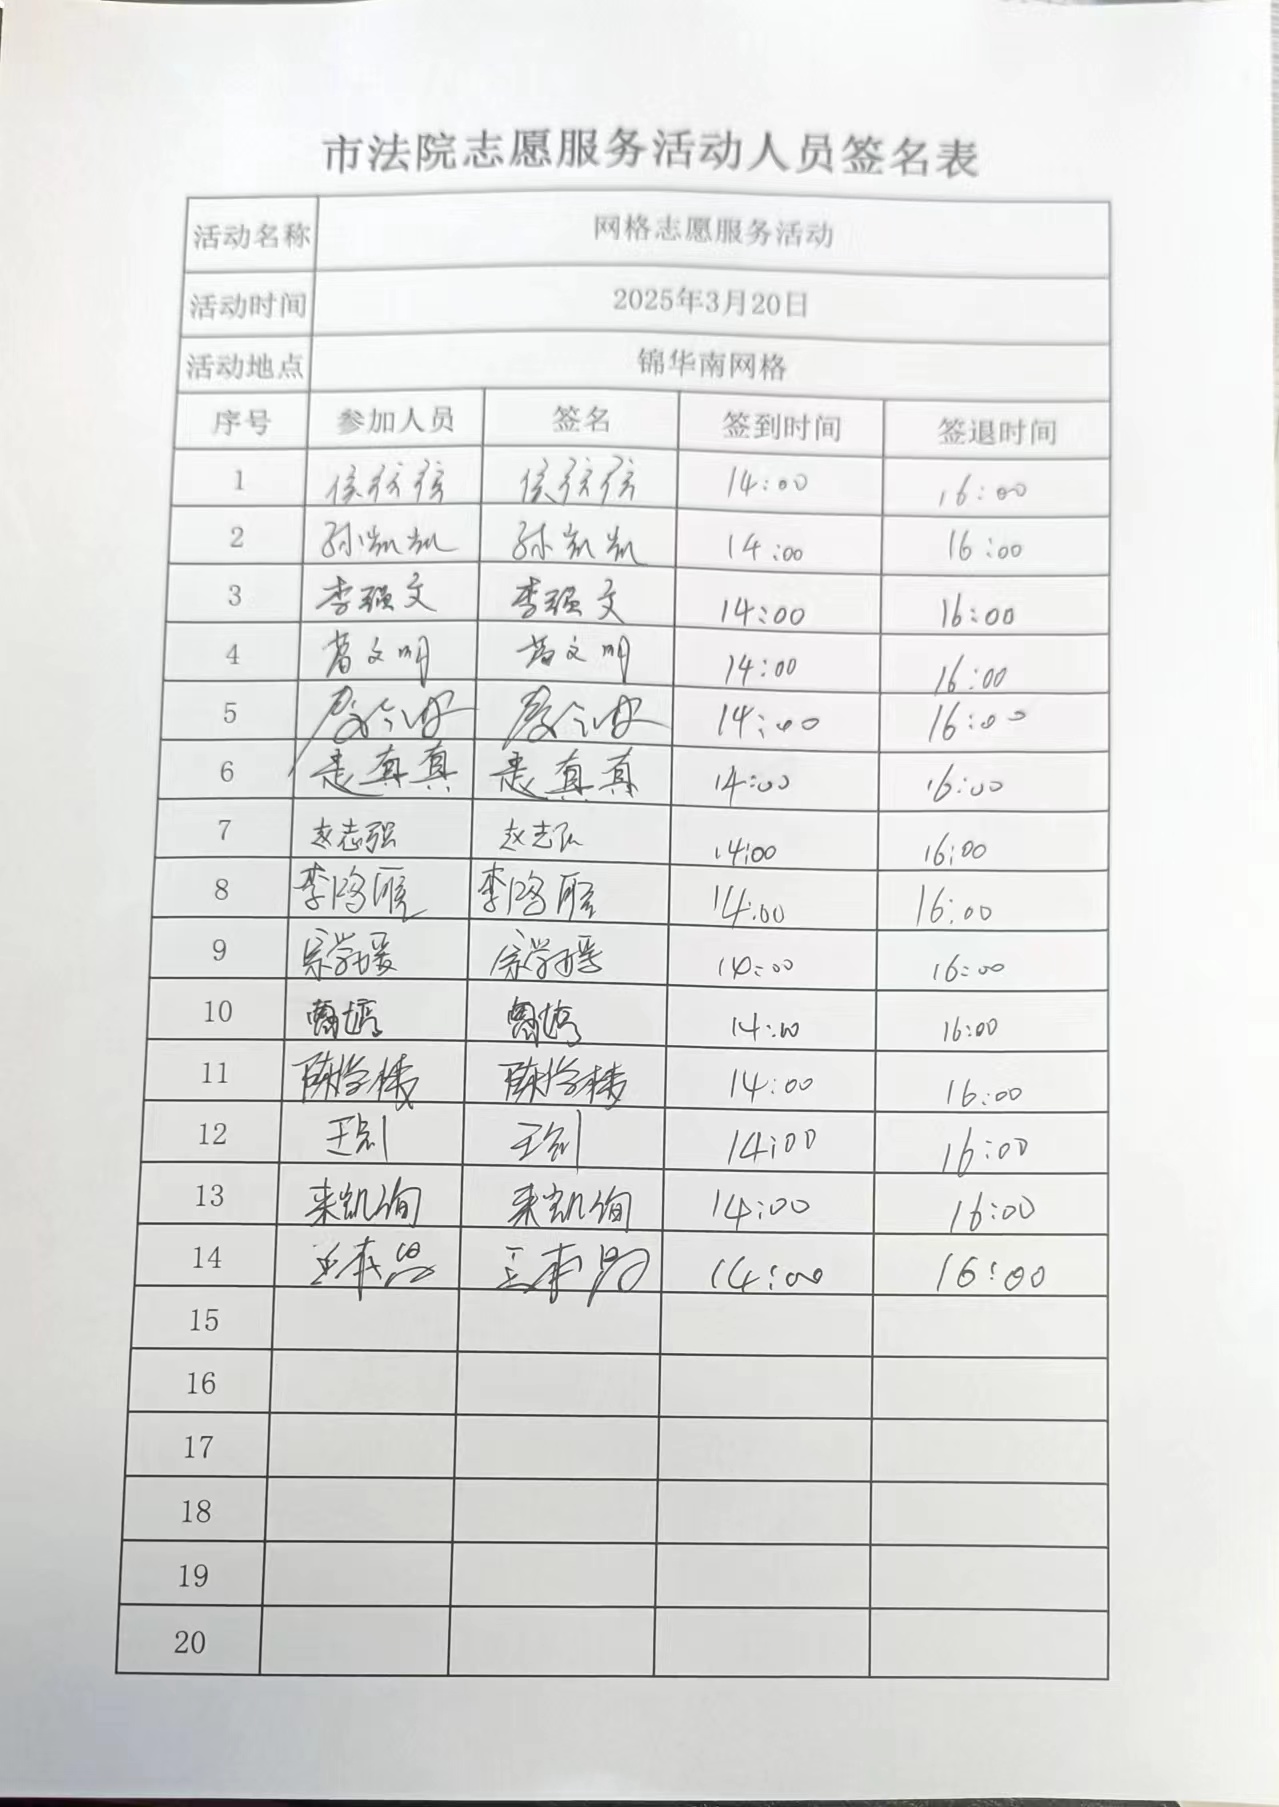 市法院志愿服务活动人员签名表
活动名称 网格志愿服务活动
活动时间 2025年3月20日
活动地点 锦华南网格
序号 参加人员 签名 签到时间 签退时间
1 14:00 16:00
2 孙凯凯 孙凯凯 14:00 16:00
3 李强文 李强文 14:00 16:00
4 葛文明 葛文明 14:00 16:00
5 14:00 16:00
6 真真 真真 14:00 16:00
7 赵志强 赵志强 14:00 16:00
8 李鸿雁 李鸿雁 14:00 16:00
9 宗学媛 宗学媛 14:00 16:00
10 曹婷 曹婷 14:00 16:00
11 陈学楼 陈学楼 14:00 16:00
12 王 王 14:00 16:00
13 来凯询 来凯询 14:00 16:00
14 王 王 14:00 16:00
15
16
17
18
19
20